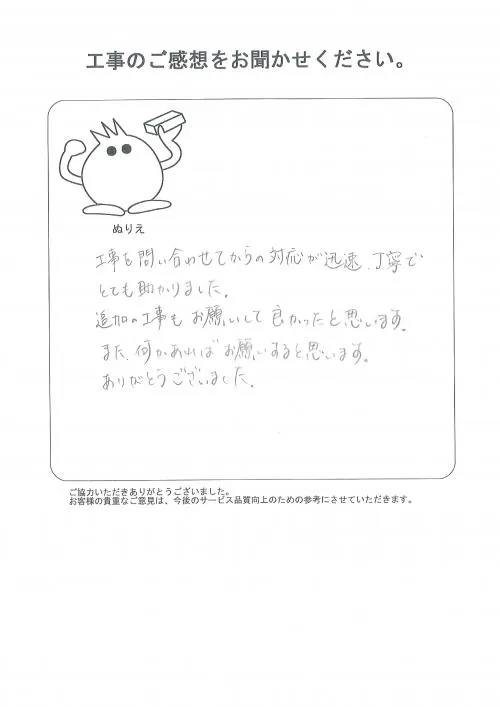 工事のご感想をお聞かせください。
ぬりえ
工事を問い合わせてからの対応が迅速、丁寧で
とても助かりました。
追加の工事もお願いして良かったと思います。
また、何かあればお願いすると思います。
ありがとうございました。
ご協力いただきありがとうございました。
お客様の貴重なご意見は、今後のサービス品質向上のための参考にさせていただきます。